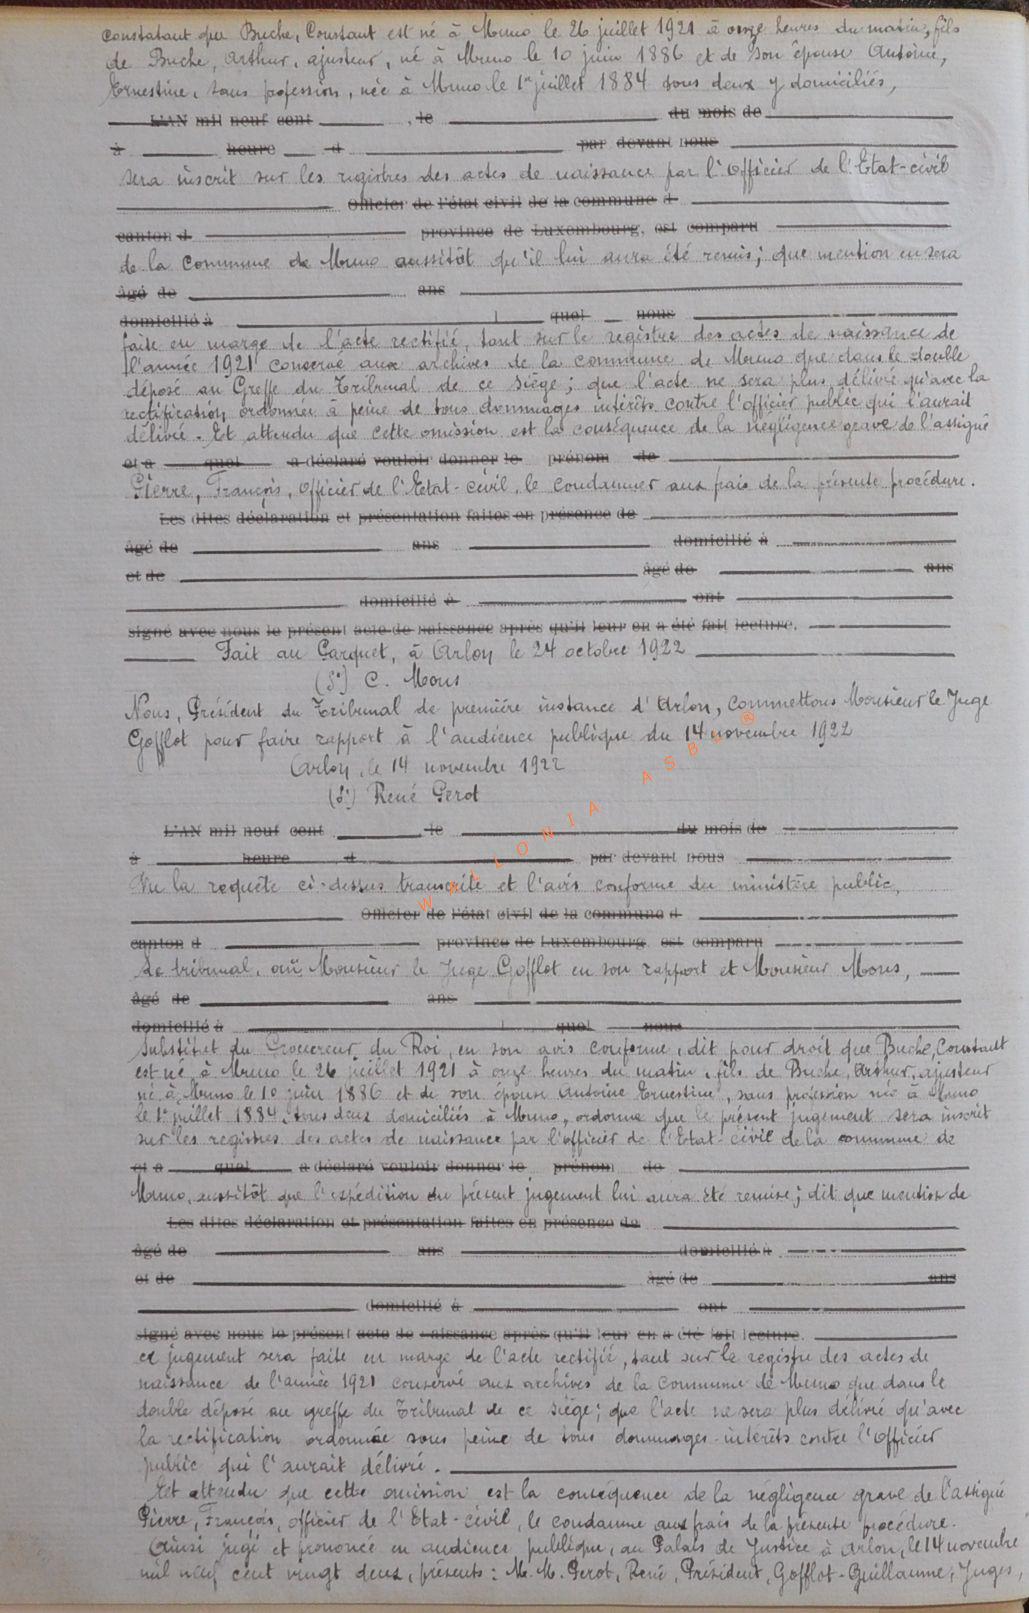 constatant que Buche, Constant est né à Muno le 26 juillet 1921 à onze heures du matin, fils
de Buche, Arthur, ajusteur, né à Muno le 10 juin 1886 et de son épouse Antoine,
Ernestine, sans profession, née à Muno le 1er juillet 1884 tous deux y domiciliés,
L'AN mil neuf cent , le du mois de
à heure d par devant nous
sera inscrit sur les registres des actes de naissance par l'Officier de l'Etat-civil
Officier de l'état civil de la commune d
canton d province de Luxembourg, est comparu
de la commune de Muno aussitôt qu'il lui aura été remis; que mention en sera
âgé de ans
domicilié à quel nous
faite en marge de l'acte rectifié, tant sur le registre des actes de naissance de
l'année 1921 conservé aux archives de la commune de Muno que dans le double
déposé au Greffe du Tribunal de ce siège; que l'acte ne sera plus délivré qu'avec la
rectification ordonnée à peine de tous dommages intérêts contre l'officier public qui l'aurait
délivré. Et attendu que cette omission est la conséquence de la négligence grave de l'assigné
et a quel a déclaré vouloir donner le prénom de
Pierre, François, Officier de l'Etat-civil, le condamner aux frais de la présente procédure.
Les dites déclaration et présentation faites en présence de
âgé de ans domicilié à
et de âgé de ans
domicilié à ont
signé avec nous le présent acte de naissance après qu'il leur en a été fait lecture.
Fait au Parquet, à Arlon le 24 octobre 1922
(Sé) C. Mons
Nous, Président du Tribunal de première instance d'Arlon, commettons Monsieur le Juge
Gofflot pour faire rapport à l'audience publique du 14 novembre 1922
Arlon, le 14 novembre 1922
(Sé) René Gerot
WALLONIA ASBL ®
L'AN mil neuf cent le du mois de
à heure d par devant nous
Vu la requête ci-dessus transcrite et l'avis conforme du ministère public,
Officier de l'état civil de la commune d
canton d province de Luxembourg est comparu
Le tribunal, ouï Monsieur le Juge Gofflot en son rapport et Monsieur Mons,
âgé de ans
domicilié à quel nous
Substitut du Procureur du Roi, en son avis conforme, dit pour droit que Buche, Constant
est né à Muno le 26 juillet 1921 à onze heures du matin, fils de Buche, Arthur, ajusteur
né à Muno le 10 juin 1886 et de son épouse Antoine Ernestine, sans profession née à Muno
le 1er juillet 1884, tous deux domiciliés à Muno, ordonne que le présent jugement sera inscrit
sur les registres des actes de naissance par l'officier de l'Etat-civil de la commune de
et a quel a déclaré vouloir donner le prénom de
Muno, aussitôt que l'expédition du présent jugement lui aura été remise; dit que mention de
Les dites déclaration et présentation faites en présence de
âgé de ans domicilié à
et de âgé de ans
domicilié à ont
signé avec nous le présent acte de naissance après qu'il leur en a été fait lecture.
ce jugement sera faite en marge de l'acte rectifié, tant sur le registre des actes de
naissance de l'année 1921 conservé aux archives de la commune de Muno que dans le
double déposé au greffe du Tribunal de ce siège; que l'acte ne sera plus délivré qu'avec
la rectification ordonnée sous peine de tous dommages-intérêts contre l'Officier
public qui l'aurait délivré.
Et attendu que cette omission est la conséquence de la négligence grave de l'assigné
Pierre, François, officier de l'Etat-civil, le condamne aux frais de la présente procédure.
Ainsi jugé et prononcé en audience publique, au Palais de Justice à Arlon, le 14 novembre
mil neuf cent vingt deux, présents: M. M. Gerot, René, Président, Gofflot-Guillaume, Juges,